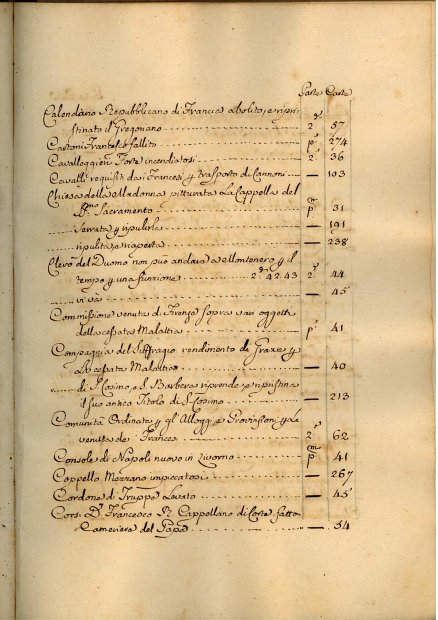 Parte Carte
Calendario Repubblicano di Francia abolito, e ripri
stinato il Gregoriano 2ª 37
Castoni Francesco fallito pª 274
Cavalloggieri Forte incendiatosi 2ª 36
Cavalli requisiti dai Francesi p trasporto di Cannoni — 103
Chiesa della Madonna pitturata La Cappella del
SSmo Sacramento pª 31
serrata p ripulirla — 191
ripulita, e riaperta — 238
Clero del Duomo non può andare a Montenero p il
tempo p una funzione 2ª 42.43 2ª 44
vi va — 45
Commissione venuta di Firenze sopra vari oggetti
della cessata Malattia pª 41
Compagnia del Suffragio rendimento di Grazie p
La cessata Malattia — 40
di S. Cosimo, e S. Barbera riprende, e ripristina
il suo antico Titolo di S. Cosimo — 213
Comunità Ordinata p gl'Alloggi, e Provvisioni p La
venuta de' Francesi 2ª 62
Console di Napoli nuovo in Livorno pª 41
Coppello Mezzano impiccatosi — 267
Cordone di Truppe Levato — 45
Corsi D. Francesco R. Cappellano di Corte fatto
Cameriere del Papa — 54